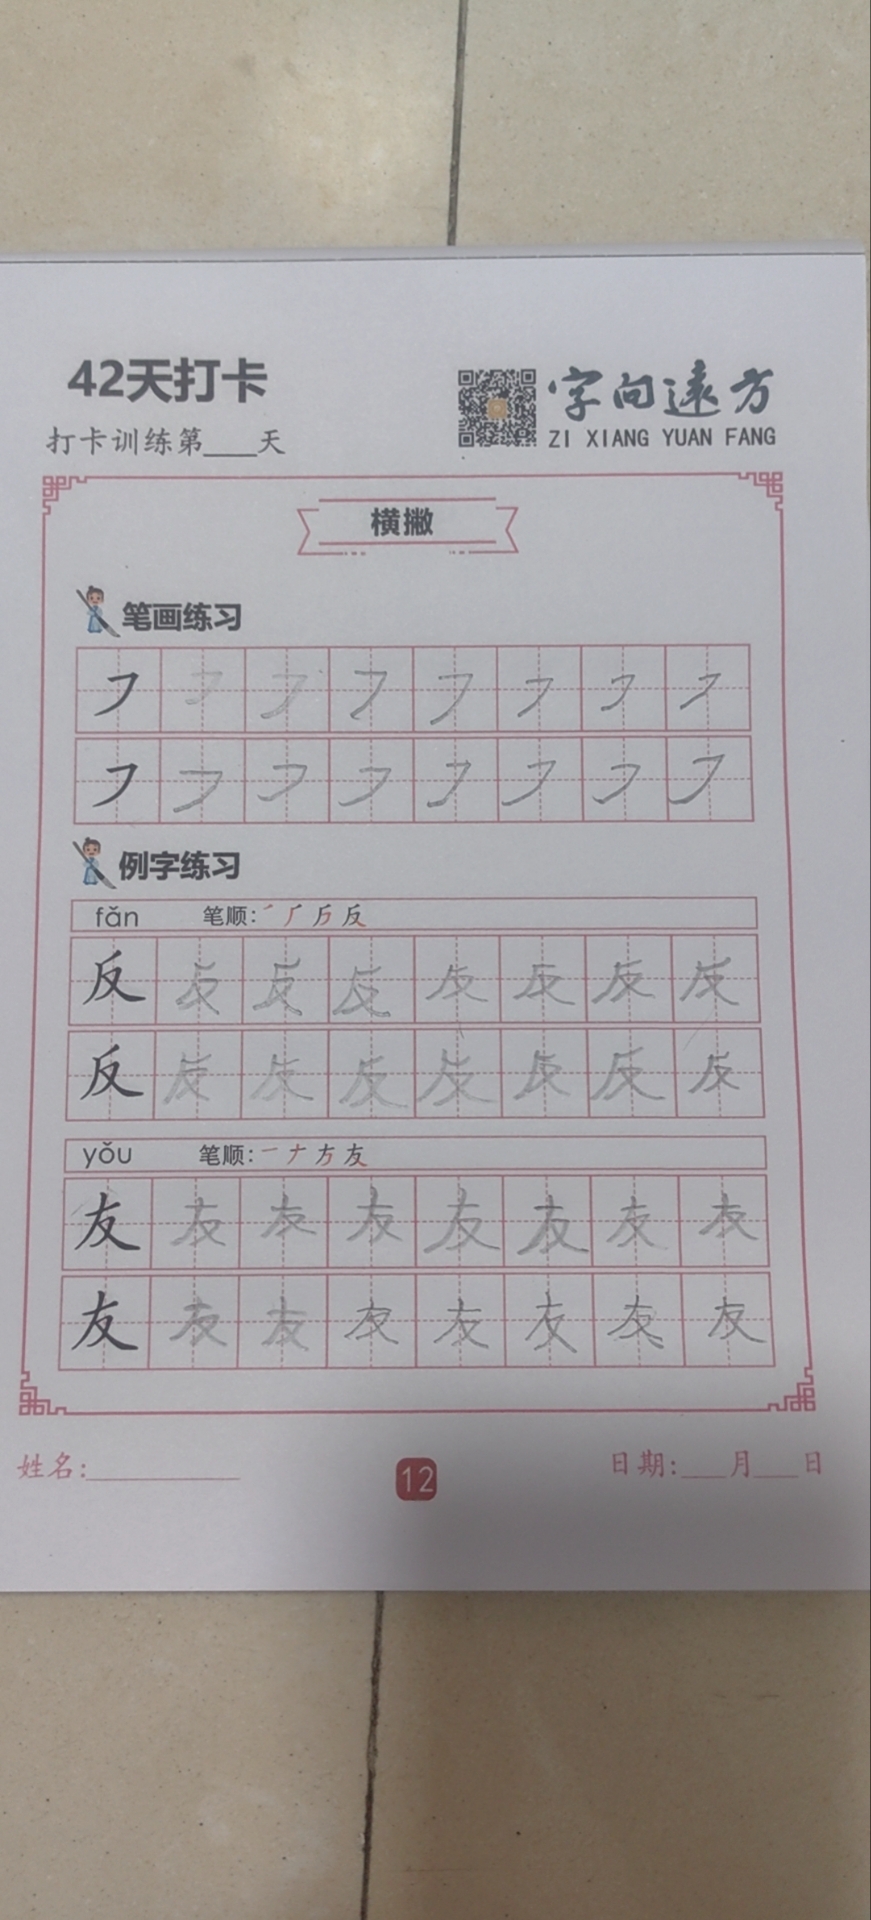 42天打卡
打卡训练第___天
字向遠方
ZI XIANG YUAN FANG
横撇
笔画练习
㇇ ㇇ ㇇ ㇇ ㇇ ㇇ ㇇ ㇇
㇇ ㇇ ㇇ ㇇ ㇇ ㇇ ㇇ ㇇
例字练习
fǎn 笔顺: 反
反 反 反 反 反 反 反 反
反 反 反 反 反 反 反 反
yǒu 笔顺: 一 ナ 方 友
友 友 友 友 友 友 友 友
友 友 友 友 友 友 友 友
姓名:
12
日期:___月___日